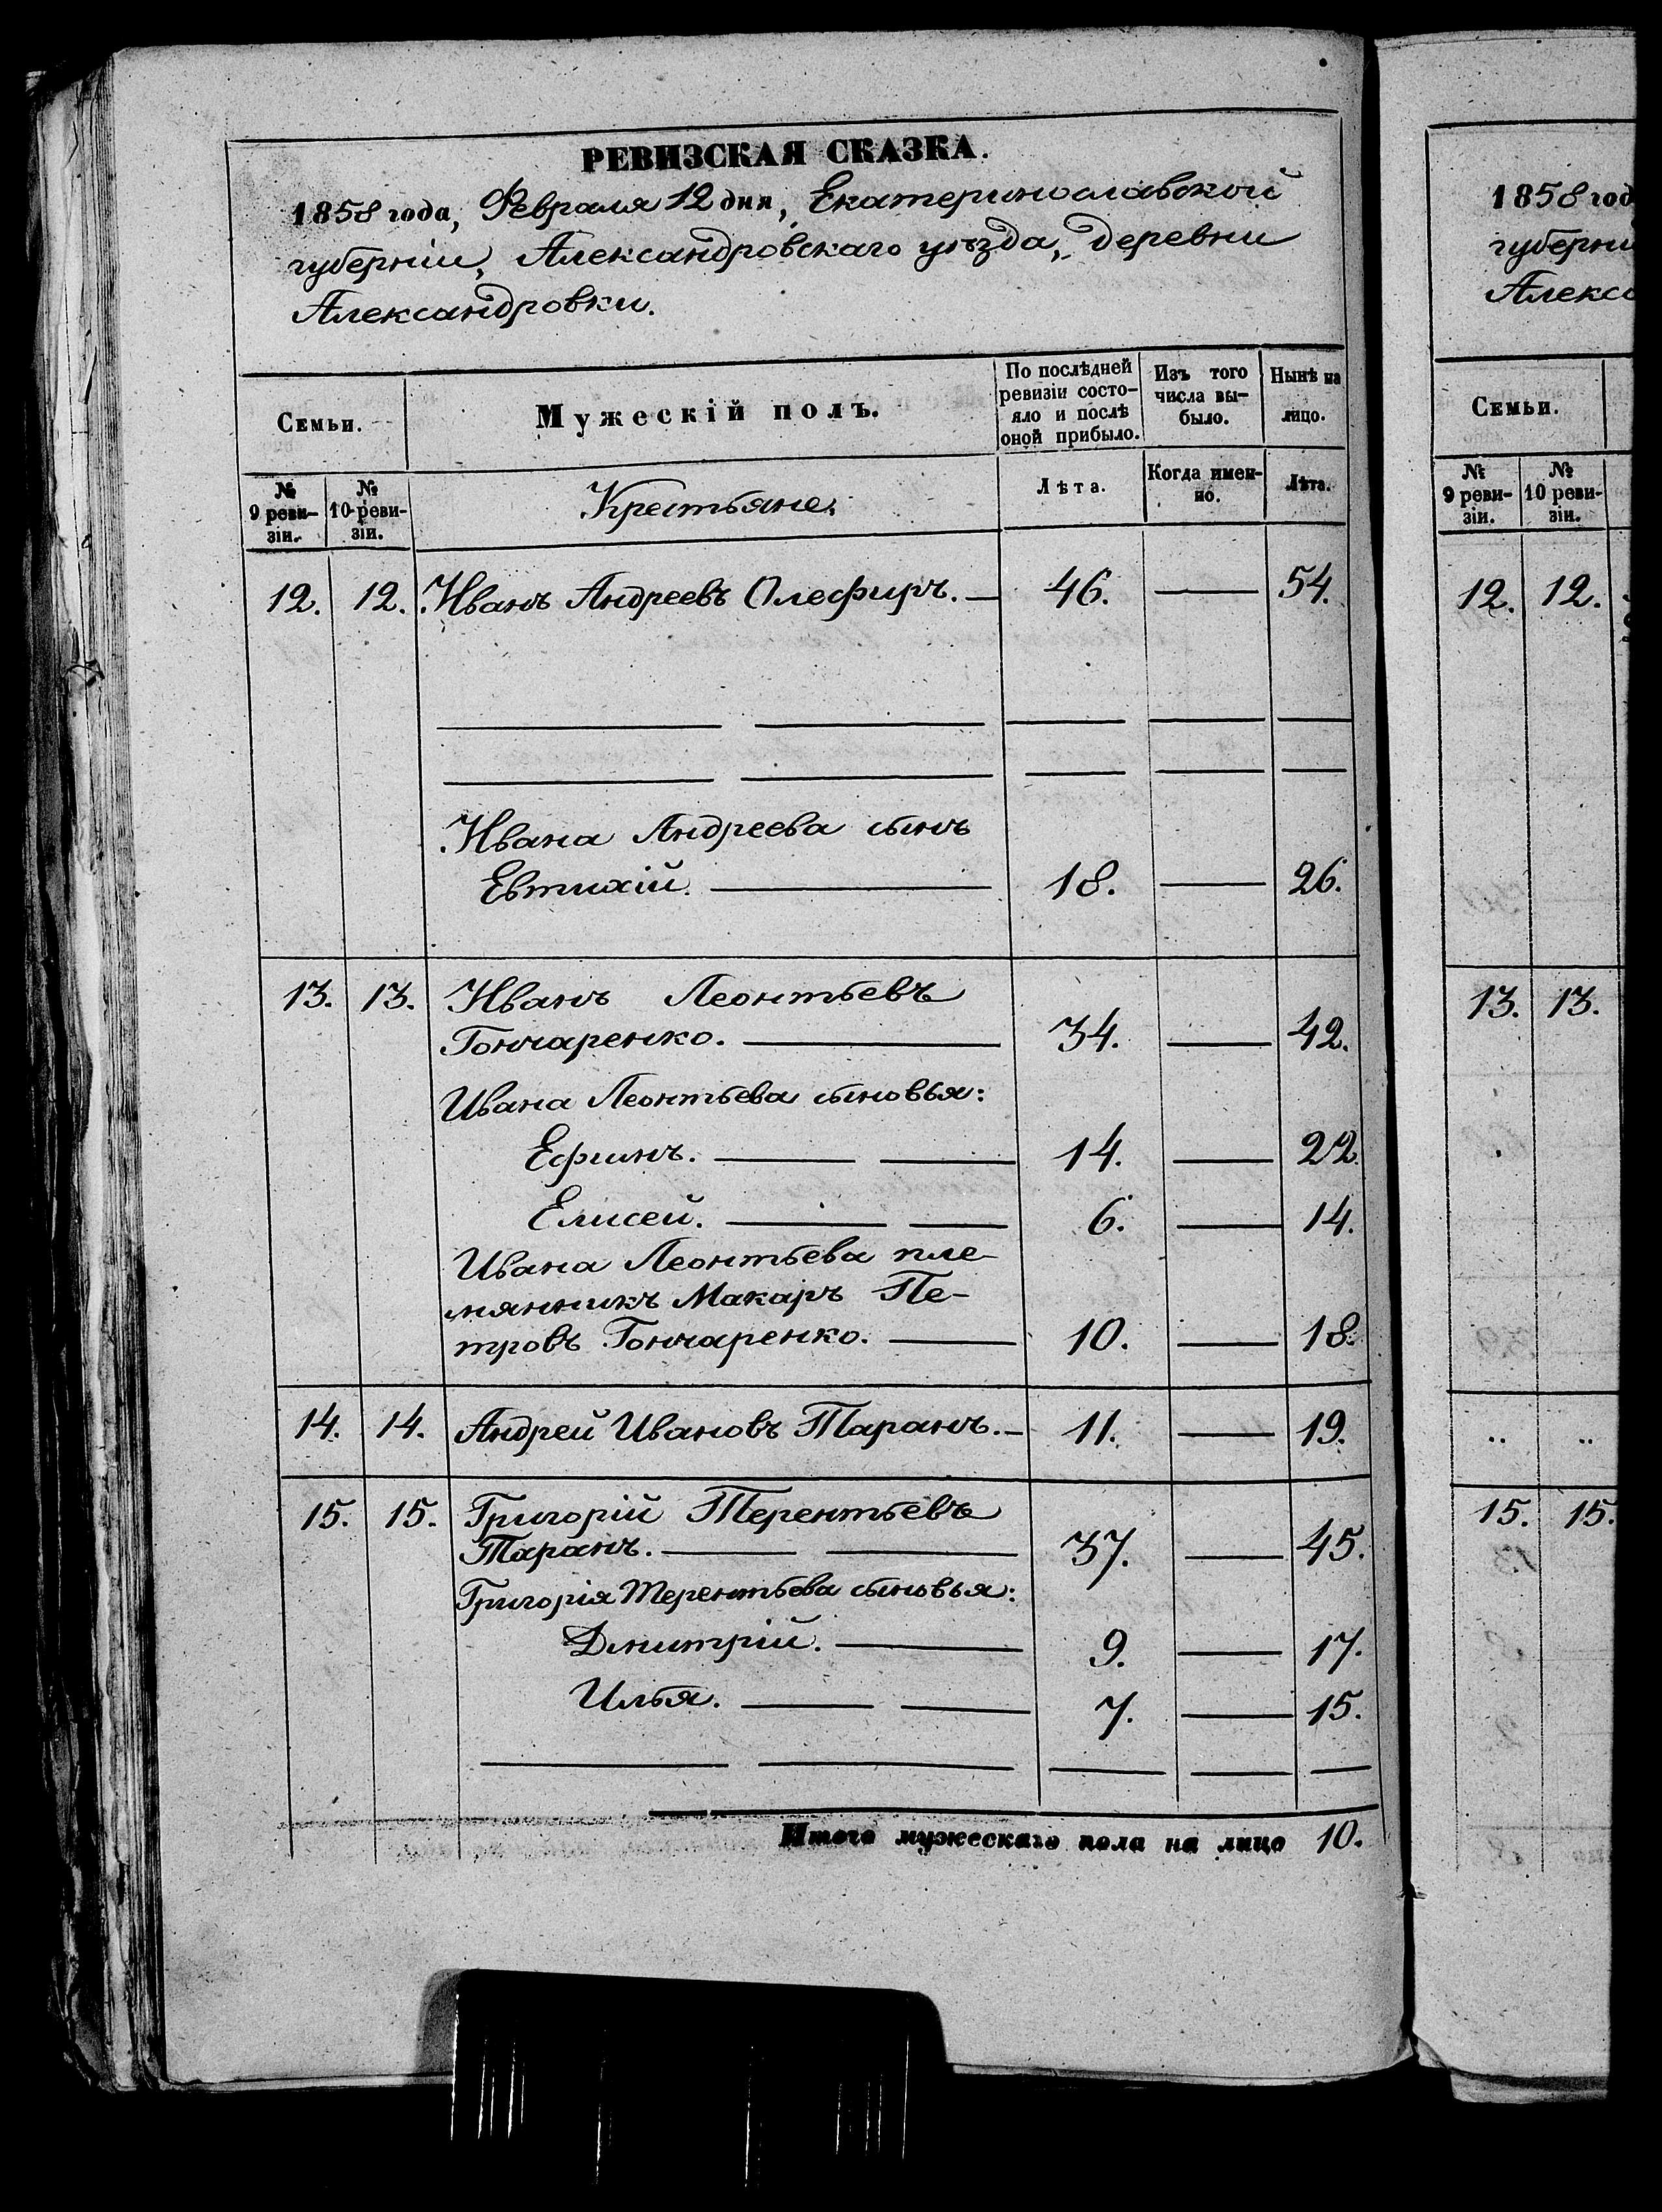 РЕВИЗСКАЯ СКАЗКА.
1858 года, Февраля 12 дня, Екатеринославской
губерніи, Александровскаго уѣзда, деревни
Александровки.
Семьи.
Мужескій полъ.
По послѣдней ревизіи состо-
яло и послѣ оной прибыло.
Изъ того числа вы-
было.
Нынѣ на лицо.
№ 9 реви-
зіи.
№ 10 реви-
зіи.
Крестьяне.
Лѣта.
Когда имен-
но.
Лѣта.
12. 12. Иванъ Андреевъ Олефиръ. — 46. — 54.
Ивана Андреева сынъ
Евтихій. — 18. — 26.
13. 13. Иванъ Леонтьевъ
Гончаренко. — 34. — 42.
Ивана Леонтьева сыновья:
Ефимъ. — 14. — 22.
Елисей. — 6. — 14.
Ивана Леонтьева пле-
мянникъ Макаръ Пе-
тровъ Гончаренко. — 10. — 18.
14. 14. Андрей Ивановъ Таранъ. — 11. — 19.
15. 15. Григорій Терентьевъ
Таранъ. — 37. — 45.
Григорія Терентьева сыновья:
Дмитрій. — 9. — 17.
Илья. — 7. — 15.
Итого мужескаго пола на лицо 10.
1858 год
губерни
Алекса
Семьи.
№ 9 реви-
зіи.
№ 10 реви-
зіи.
12. 12.
13. 13.
.. ..
15. 15.